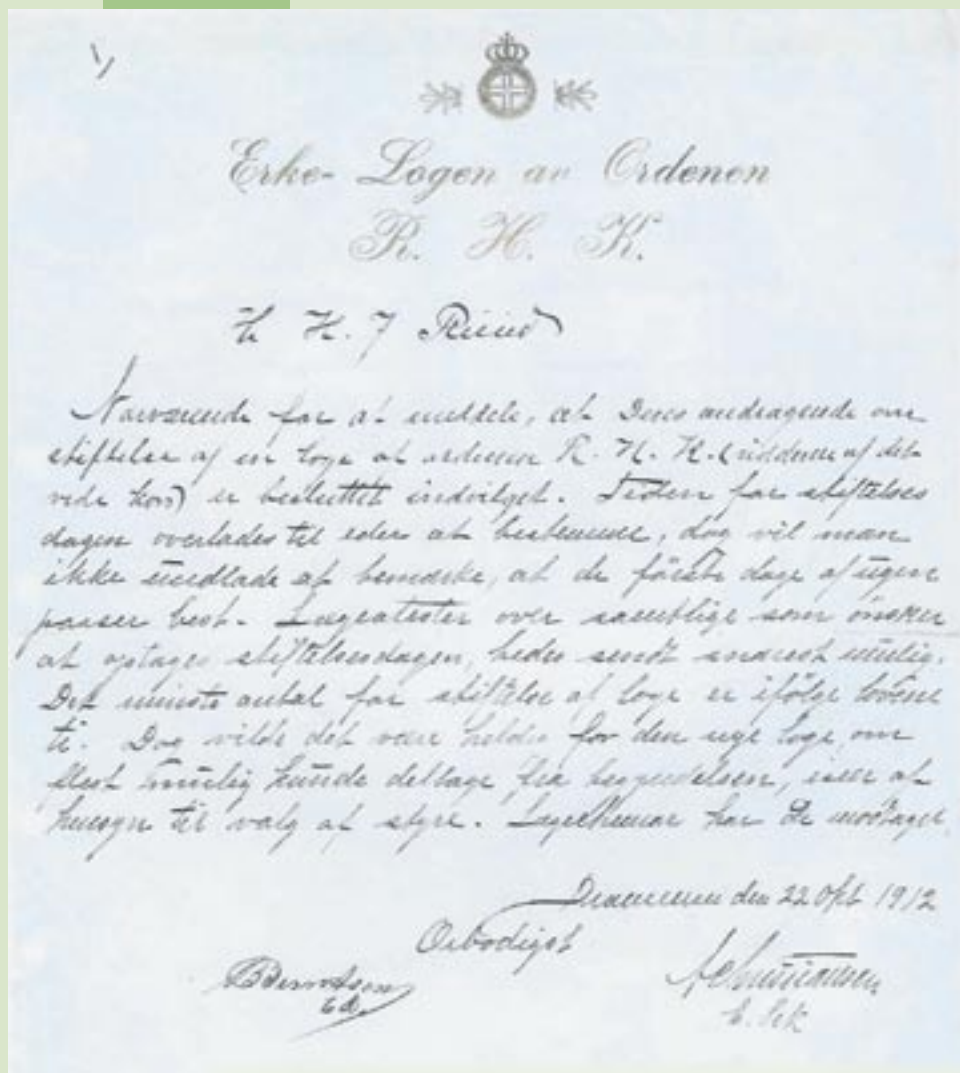 1/
Erke-Logen av Ordenen
R. H. K.
Hr H. J Ruud
Nærværende for at meddele, at Deres andragende om
stiftelse af en loge af ordenen R. H. K. (ridderne af det
røde kors) er besluttet indvilget. Tiden for stiftelses
dagen overlades til eder at bestemme, dog vil man
ikke undlade at bemærke, at de første dage af ugen
passer best. Lægeatester over samtlige som ønsker
at optages stiftelsesdagen, bedes sendt snarest mulig.
Det minste antal for stiftelse af loge er ifølge lovene
ti. Dog vilde det være heldig for den nye loge, om
flest mulig kunde deltage fra begyndelsen, især af
hensyn til valg af styre. har De modtaget
Drammen den 22 Okt 1912
Ærbødigst